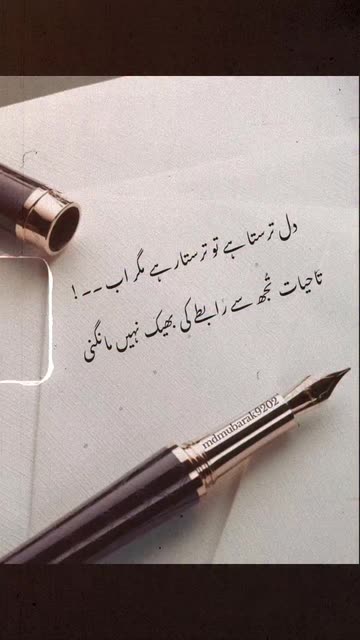 دل ترستا ہے تو ترستا رہے مگر اب ۔۔ !
تاحیات تُجھ سے رابطے کی بھیک نہیں مانگنی
mdmubarak9202